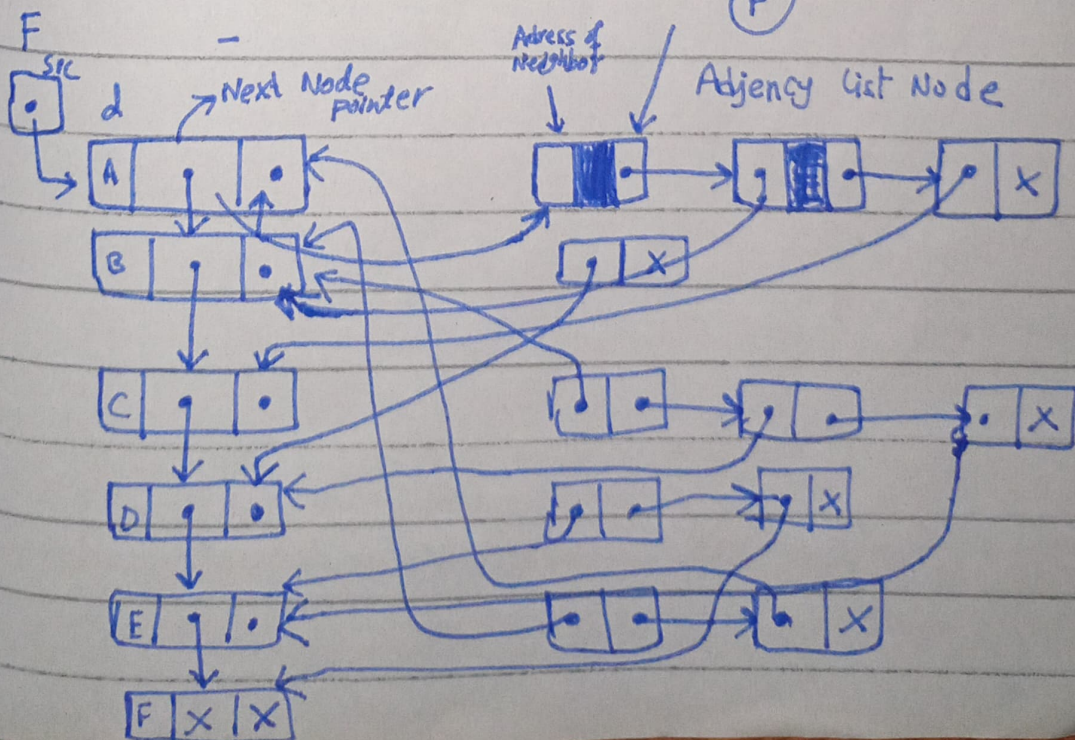 F
P
src
d
Next Node
pointer
Adress of
Neighbor
Adjency list Node
A
X
B
X
C
X
D
X
E
X
F X X